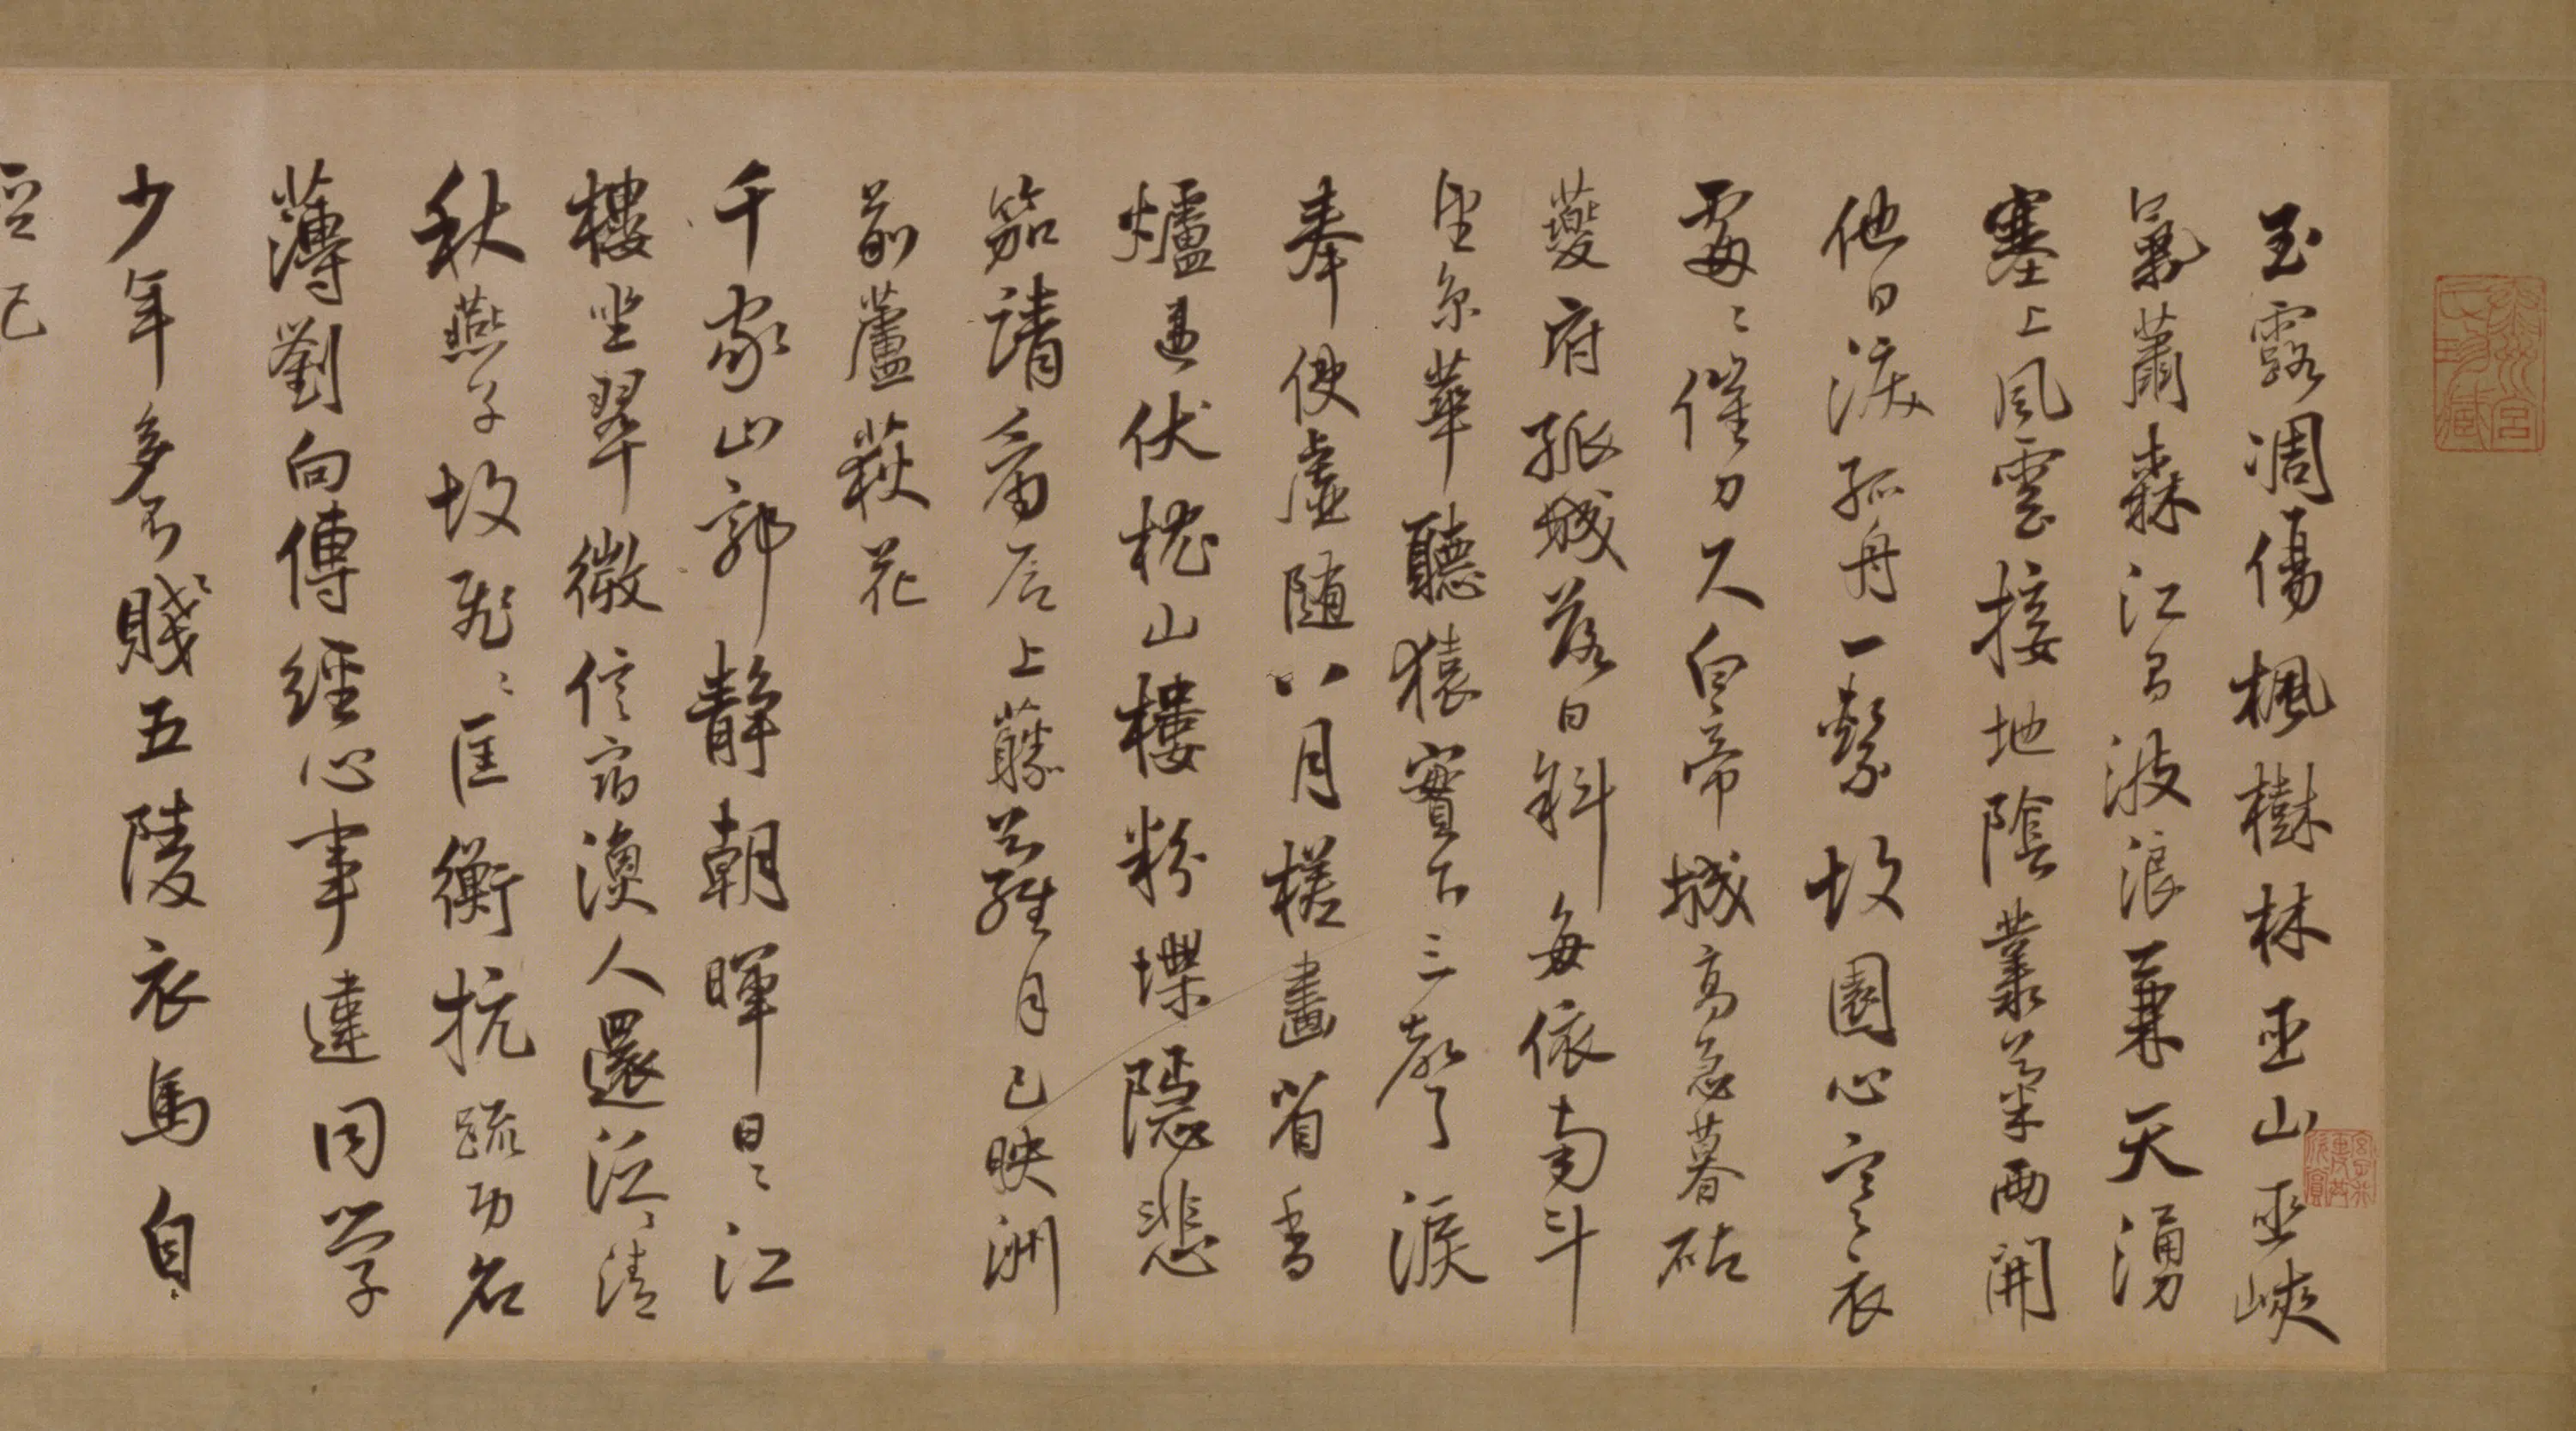 玉露凋傷楓樹林巫山巫峽
氣蕭森江間波浪兼天湧
塞上風雲接地陰叢菊兩開
他日淚孤舟一繫故園心寒衣
處々催刀尺白帝城高急暮砧
夔府孤城落日斜每依南斗
望京華聽猿實下三聲淚
奉使虛隨八月槎畫省香
爐違伏枕山樓粉堞隱悲
笳請看石上藤蘿月已映洲
前蘆荻花
千家山郭靜朝暉日々江
樓坐翠微信宿漁人還泛々清
秋燕子故飛々匡衡抗疏功名
薄劉向傳經心事違同學
少年多不賤五陵衣馬自